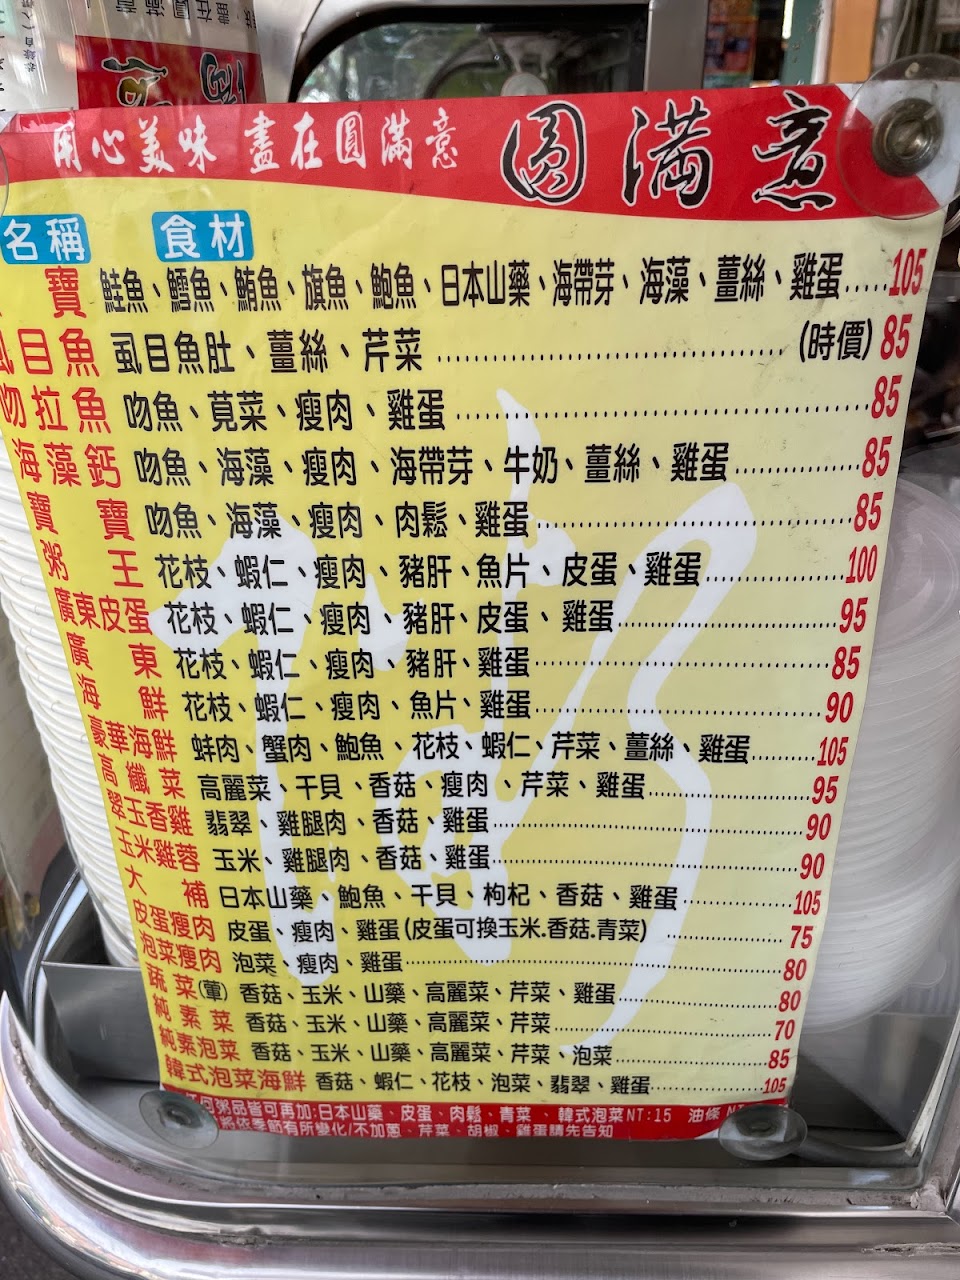 用心美味 盡在圓滿意 圓滿意
名稱 食材
寶 鮭魚、鱈魚、鮪魚、旗魚、鮑魚、日本山藥、海帶芽、海藻、薑絲、雞蛋.....105
虱目魚 虱目魚肚、薑絲、芹菜 ..... (時價) 85
吻拉魚 吻魚、莧菜、瘦肉、雞蛋 ..... 85
海藻鈣 吻魚、海藻、瘦肉、海帶芽、牛奶、薑絲、雞蛋.....85
寶寶 吻魚、海藻、瘦肉、肉鬆、雞蛋.....85
粥王 花枝、蝦仁、瘦肉、豬肝、魚片、皮蛋、雞蛋.....100
廣東皮蛋 花枝、蝦仁、瘦肉、豬肝、皮蛋、雞蛋.....95
廣東 花枝、蝦仁、瘦肉、豬肝、雞蛋.....85
海鮮 花枝、蝦仁、瘦肉、魚片、雞蛋.....90
豪華海鮮 蚌肉、蟹肉、鮑魚、花枝、蝦仁、芹菜、薑絲、雞蛋.....105
高纖菜 高麗菜、干貝、香菇、瘦肉、芹菜、雞蛋.....95
翠玉香雞 翡翠、雞腿肉、香菇、雞蛋.....90
玉米雞蓉 玉米、雞腿肉、香菇、雞蛋.....90
大補 日本山藥、鮑魚、干貝、枸杞、香菇、雞蛋.....105
皮蛋瘦肉 皮蛋、瘦肉、雞蛋(皮蛋可換玉米.香菇.青菜) ..... 75
泡菜瘦肉 泡菜、瘦肉、雞蛋.....80
蔬菜(葷) 香菇、玉米、山藥、高麗菜、芹菜、雞蛋.....80
純素菜 香菇、玉米、山藥、高麗菜、芹菜.....70
純素泡菜 香菇、玉米、山藥、高麗菜、芹菜、泡菜.....85
韓式泡菜海鮮 香菇、蝦仁、花枝、泡菜、翡翠、雞蛋.....105
何粥品皆可再加:日本山藥、皮蛋、肉鬆、青菜、韓式泡菜NT:15 油條
將依季節有所變化/不加蔥、芹菜、胡椒、雞蛋請先告知